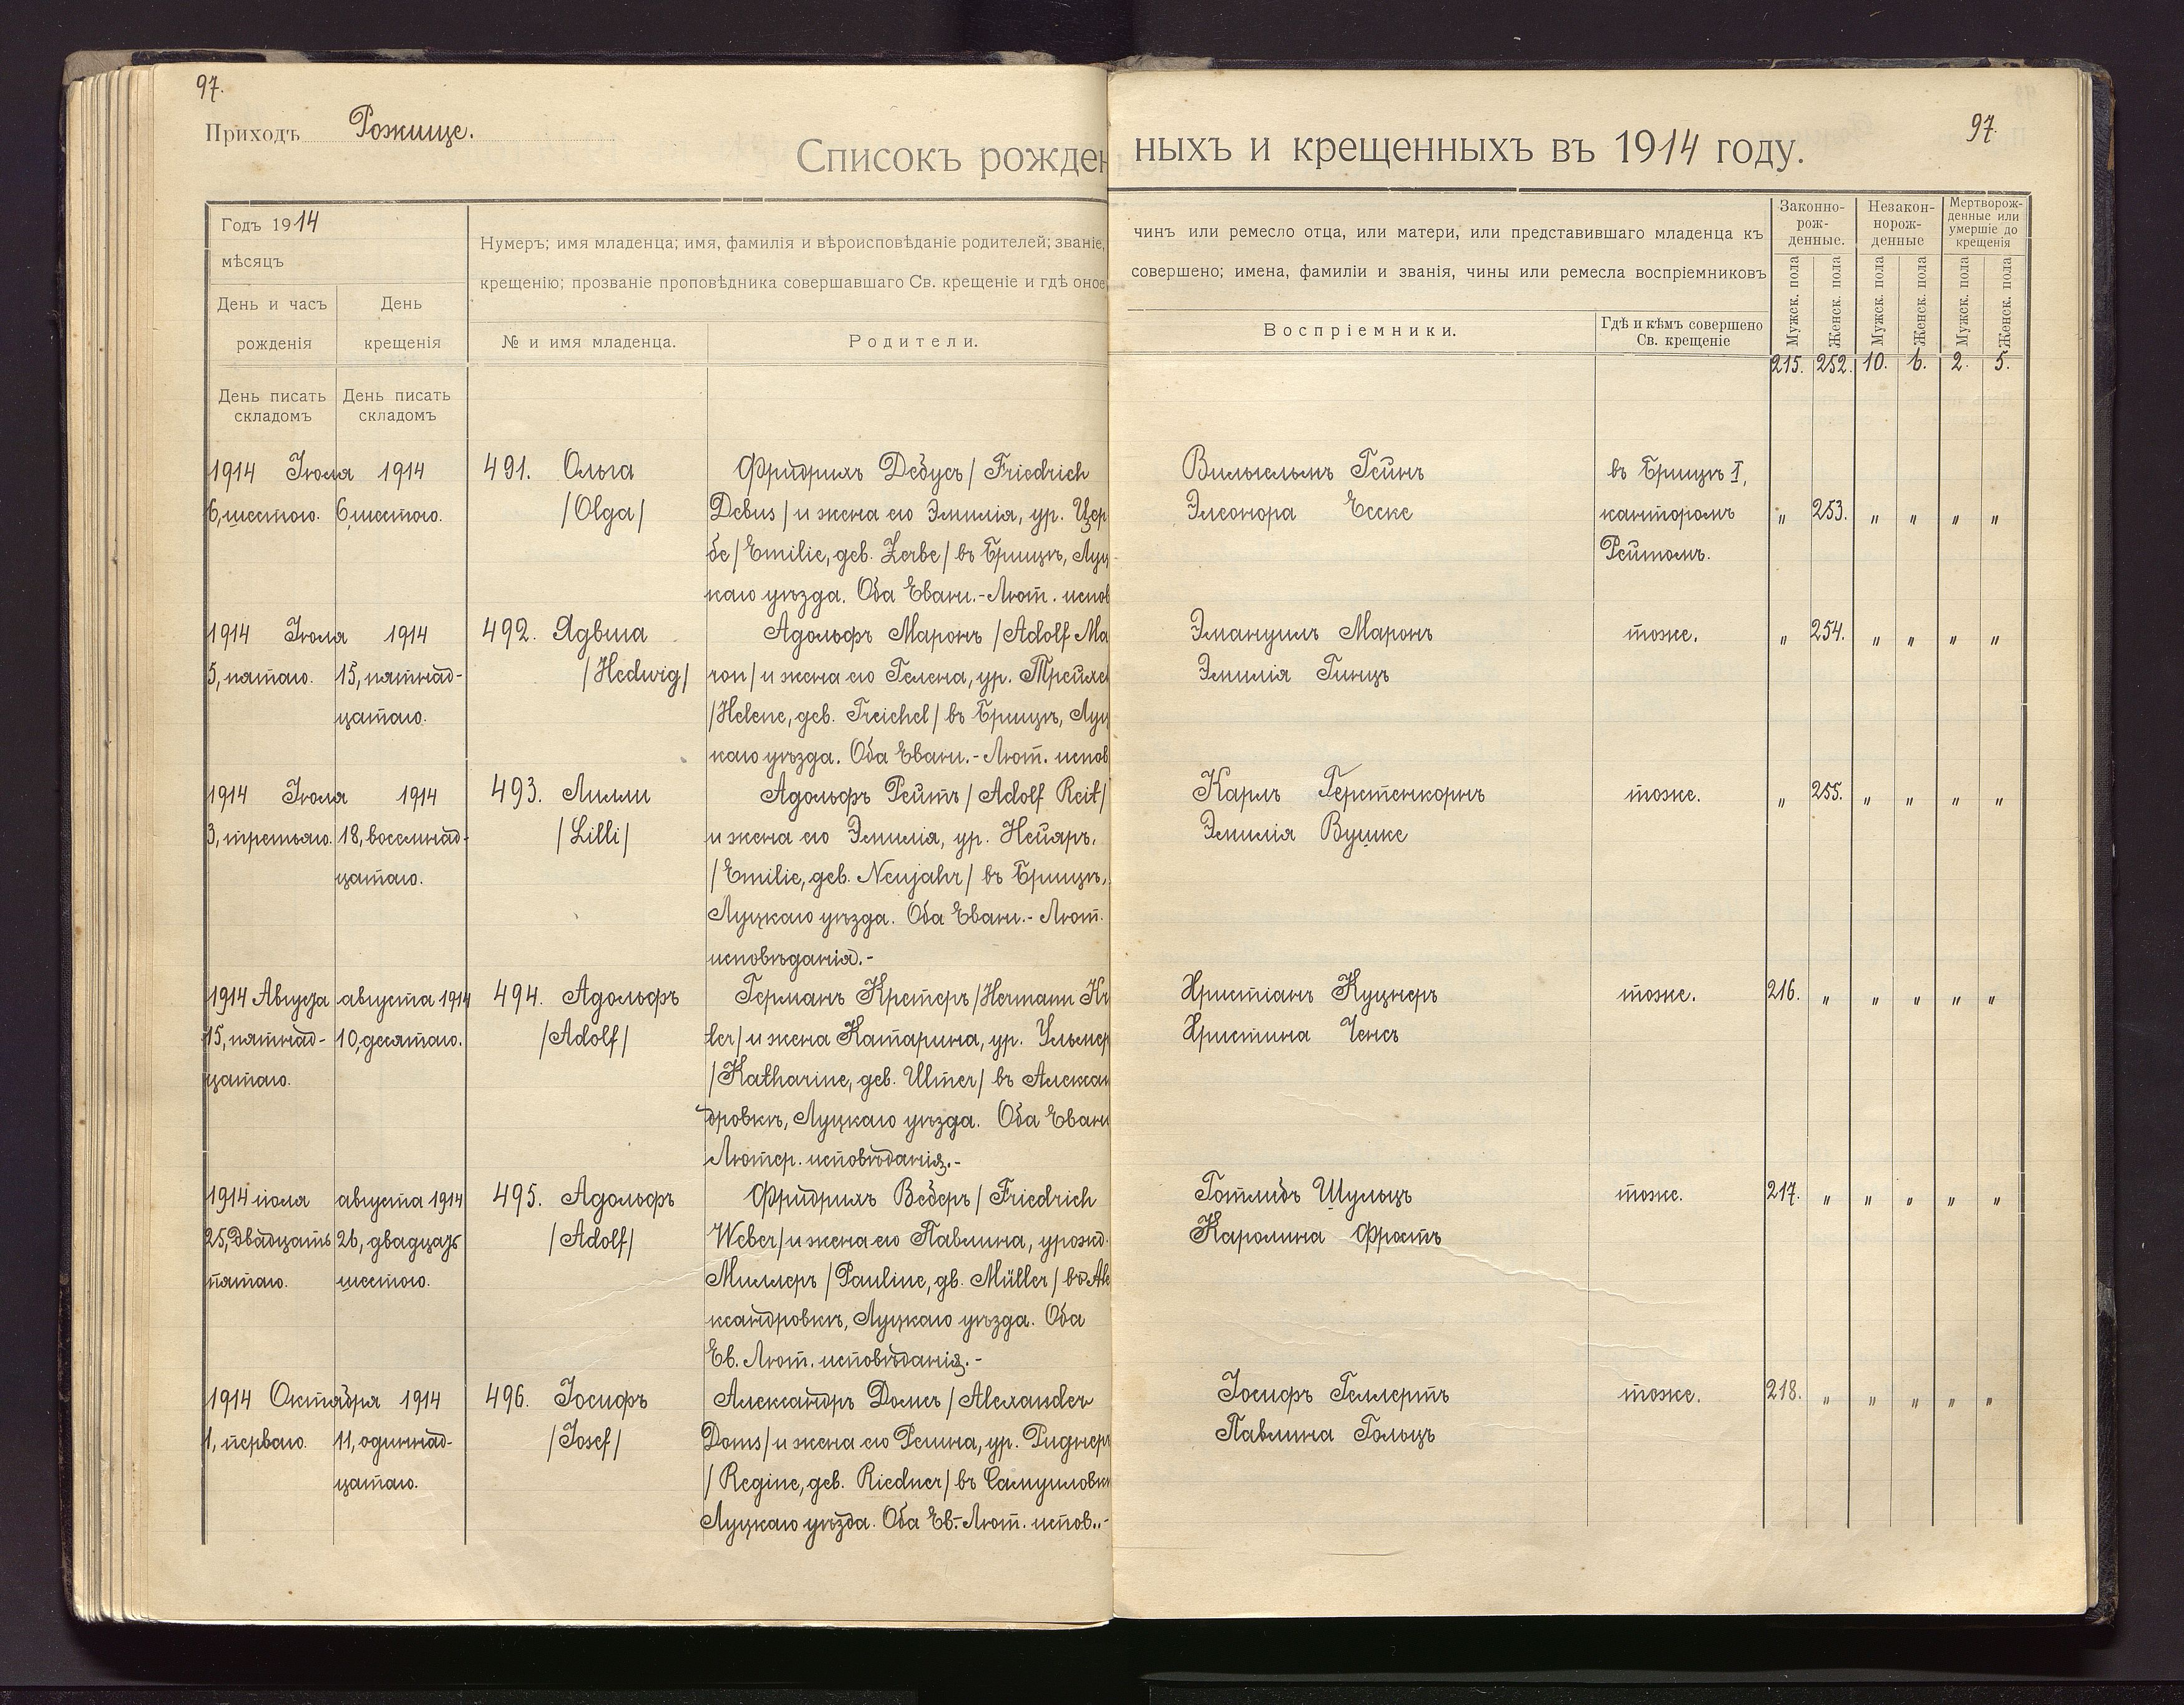 97.
Приходъ Рожище.
Списокъ рожден
Годъ 1914
мѣсяцъ
День и часъ рожденія
День крещенія
Нумеръ; имя младенца; имя, фамилія и вѣроисповѣданіе родителей; званіе,
крещенію; прозваніе проповѣдника совершавшаго Св. крещеніе и гдѣ оное
№ и имя младенца.
Родители.
День писать складомъ
День писать складомъ
1914 Іюля 1914
6, шестого. 6, шестого.
491. Ольга
/Olga/
Фридрихъ Дебусъ / Friedrich
Debus / и жена его Эмилія, ур. Цер
бе / Emilie, geb. Zerbe / въ Брищѣ, Луц
каго уѣзда. Оба Еванг.-Лют. испов
1914 Іюля 1914
5, пятаго. 15, пятнад-
цатаго.
492. Ядвига
/Hedwig/
Адольфъ Маронъ / Adolf Ma
ron / и жена его Гелена, ур. Трейхе
/ Helene, geb. Treichel / въ Брищѣ, Луц
каго уѣзда. Оба Еванг.-Лют. испов
1914 Іюля 1914
3, третьяго. 18, восемнад-
цатаго.
493. Лилли
/Lilli/
Адольфъ Рейтъ / Adolf Reit /
и жена его Эмилія, ур. Нейяръ,
/ Emilie, geb. Neujahr / въ Брищѣ,
Луцкаго уѣзда. Оба Еванг.-Лют.
исповѣданія.-
1914 августа 1914
15, пятнад- 10, десятаго.
цатаго.
494. Адольфъ
/Adolf/
Германъ / Hermann Kr
ler / и жена Катарина, ур. Ульмер
/ Katharine, geb. Ulmer / въ Алексан
дровкѣ, Луцкаго уѣзда. Оба Еванг
Лютер. исповѣданія.-
1914 іюля августа 1914
25, двадцать 26, двадцать
пятаго. шестого.
495. Адольфъ
/Adolf/
Фридрихъ Веберъ / Friedrich
Weber / и жена его Павлина, урожд.
Миллеръ / Pauline, gb. Müller / въ Але
ксандровкѣ, Луцкаго уѣзда. Оба
Ев. Лют. исповѣданія.-
1914 Октября 1914
1, перваго. 11, одиннад-
цатаго.
496. Іосифъ
/Josef/
Александръ Домсъ / Alexander
Doms / и жена его Регина, ур. Риднеръ
/ Regine, geb. Riedner / въ Самуиловк
Луцкаго уѣзда. Оба Ев.-Лют. испов.-
97.
ныхъ и крещенныхъ въ 1914 году.
чинъ или ремесло отца, или матери, или представившаго младенца къ
совершено; имена, фамиліи и званія, чины или ремесла воспріемниковъ
Воспріемники.
Гдѣ и кѣмъ совершено Св. крещеніе
Законно-рож-денные.
Незакон-норож-денные
Мертворож-денные или умершіе до крещенія
Мужск. пола
Женск. пола
Мужск. пола
Женск. пола
Мужск. пола
Женск. пола
215. 252. 10. 6. 2. 5.
Вильгельмъ Гейнъ
Элеонора Еске
въ Брищѣ I,
канторомъ
Рейтомъ.
„ 253. „ „ „ „
Эмануилъ Маронъ
Эмилія Гинцъ
тоже.
„ 254. „ „ „ „
Карлъ Герстенкорнъ
Эмилія Вушке
тоже.
„ 255. „ „ „ „
Христіанъ Куцнеръ
Христина Ченсъ
тоже.
216. „ „ „ „ „
Готлибъ Шульцъ
Каролина Фростъ
тоже.
217. „ „ „ „ „
Іосифъ Геллертъ
Павлина Гольцъ
тоже.
218. „ „ „ „ „